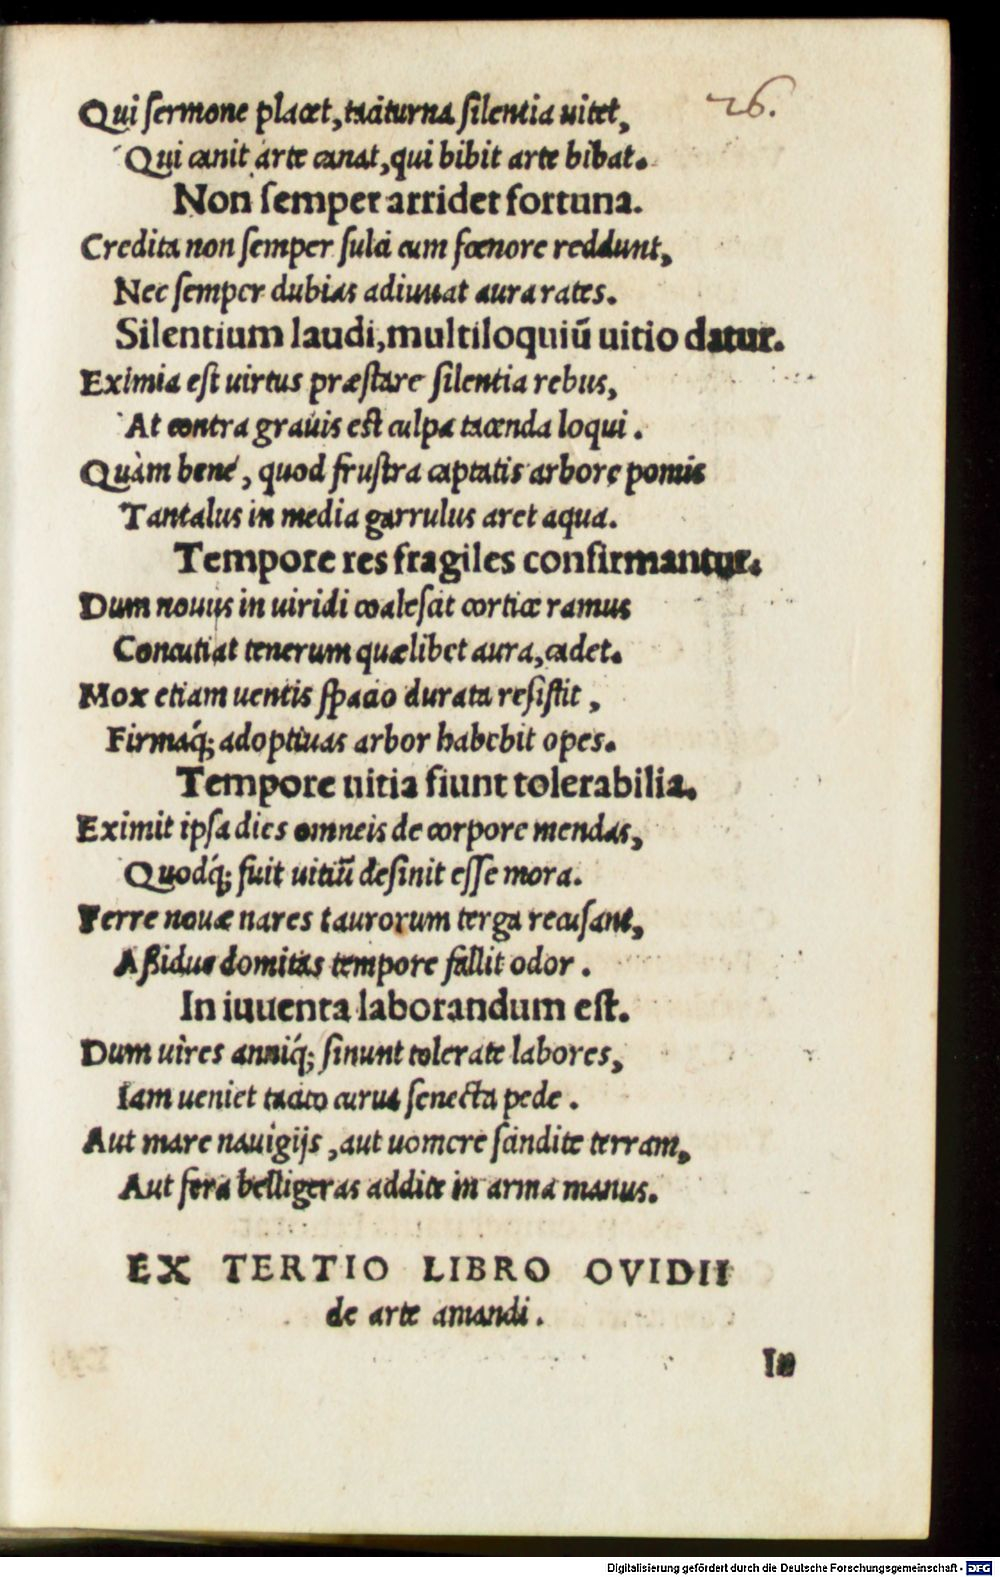 26.
Qui sermone placet, taciturna silentia uitet,
Qui canit arte canat, qui bibit arte bibat.
Non semper arridet fortuna.
Credita non semper sulci cum fœnore reddunt,
Nec semper dubias adiuuat aura rates.
Silentium laudi, multiloquiũ uitio datur.
Eximia est uirtus præstare silentia rebus,
At contra grauis est culpa tacenda loqui.
Quàm bené, quod frustra captatis arbore pomis
Tantalus in media garrulus aret aqua.
Tempore res fragiles confirmantur.
Dum nouus in uiridi coalescit cortice ramus
Concutiat tenerum quælibet aura, cadet.
Mox etiam uentis spacio durata resistit,
Firmaq́; adoptiuas arbor habebit opes.
Tempore uitia fiunt tolerabilia.
Eximit ipsa dies omneis de corpore mendas,
Quodq́; fuit uitiũ desinit esse mora.
Ferre nouæ nares taurorum terga recusant,
Aßidue domitas tempore fallit odor.
In iuuenta laborandum est.
Dum uires anniq́; sinunt tolerate labores,
Iam ueniet tacito curua senecta pede.
Aut mare nauigijs, aut uomere scindite terram,
Aut fera belligeras addite in arma manus.
EX TERTIO LIBRO OVIDII
de arte amandi.
In
Digitalisierung gefördert durch die Deutsche Forschungsgemeinschaft - DFG